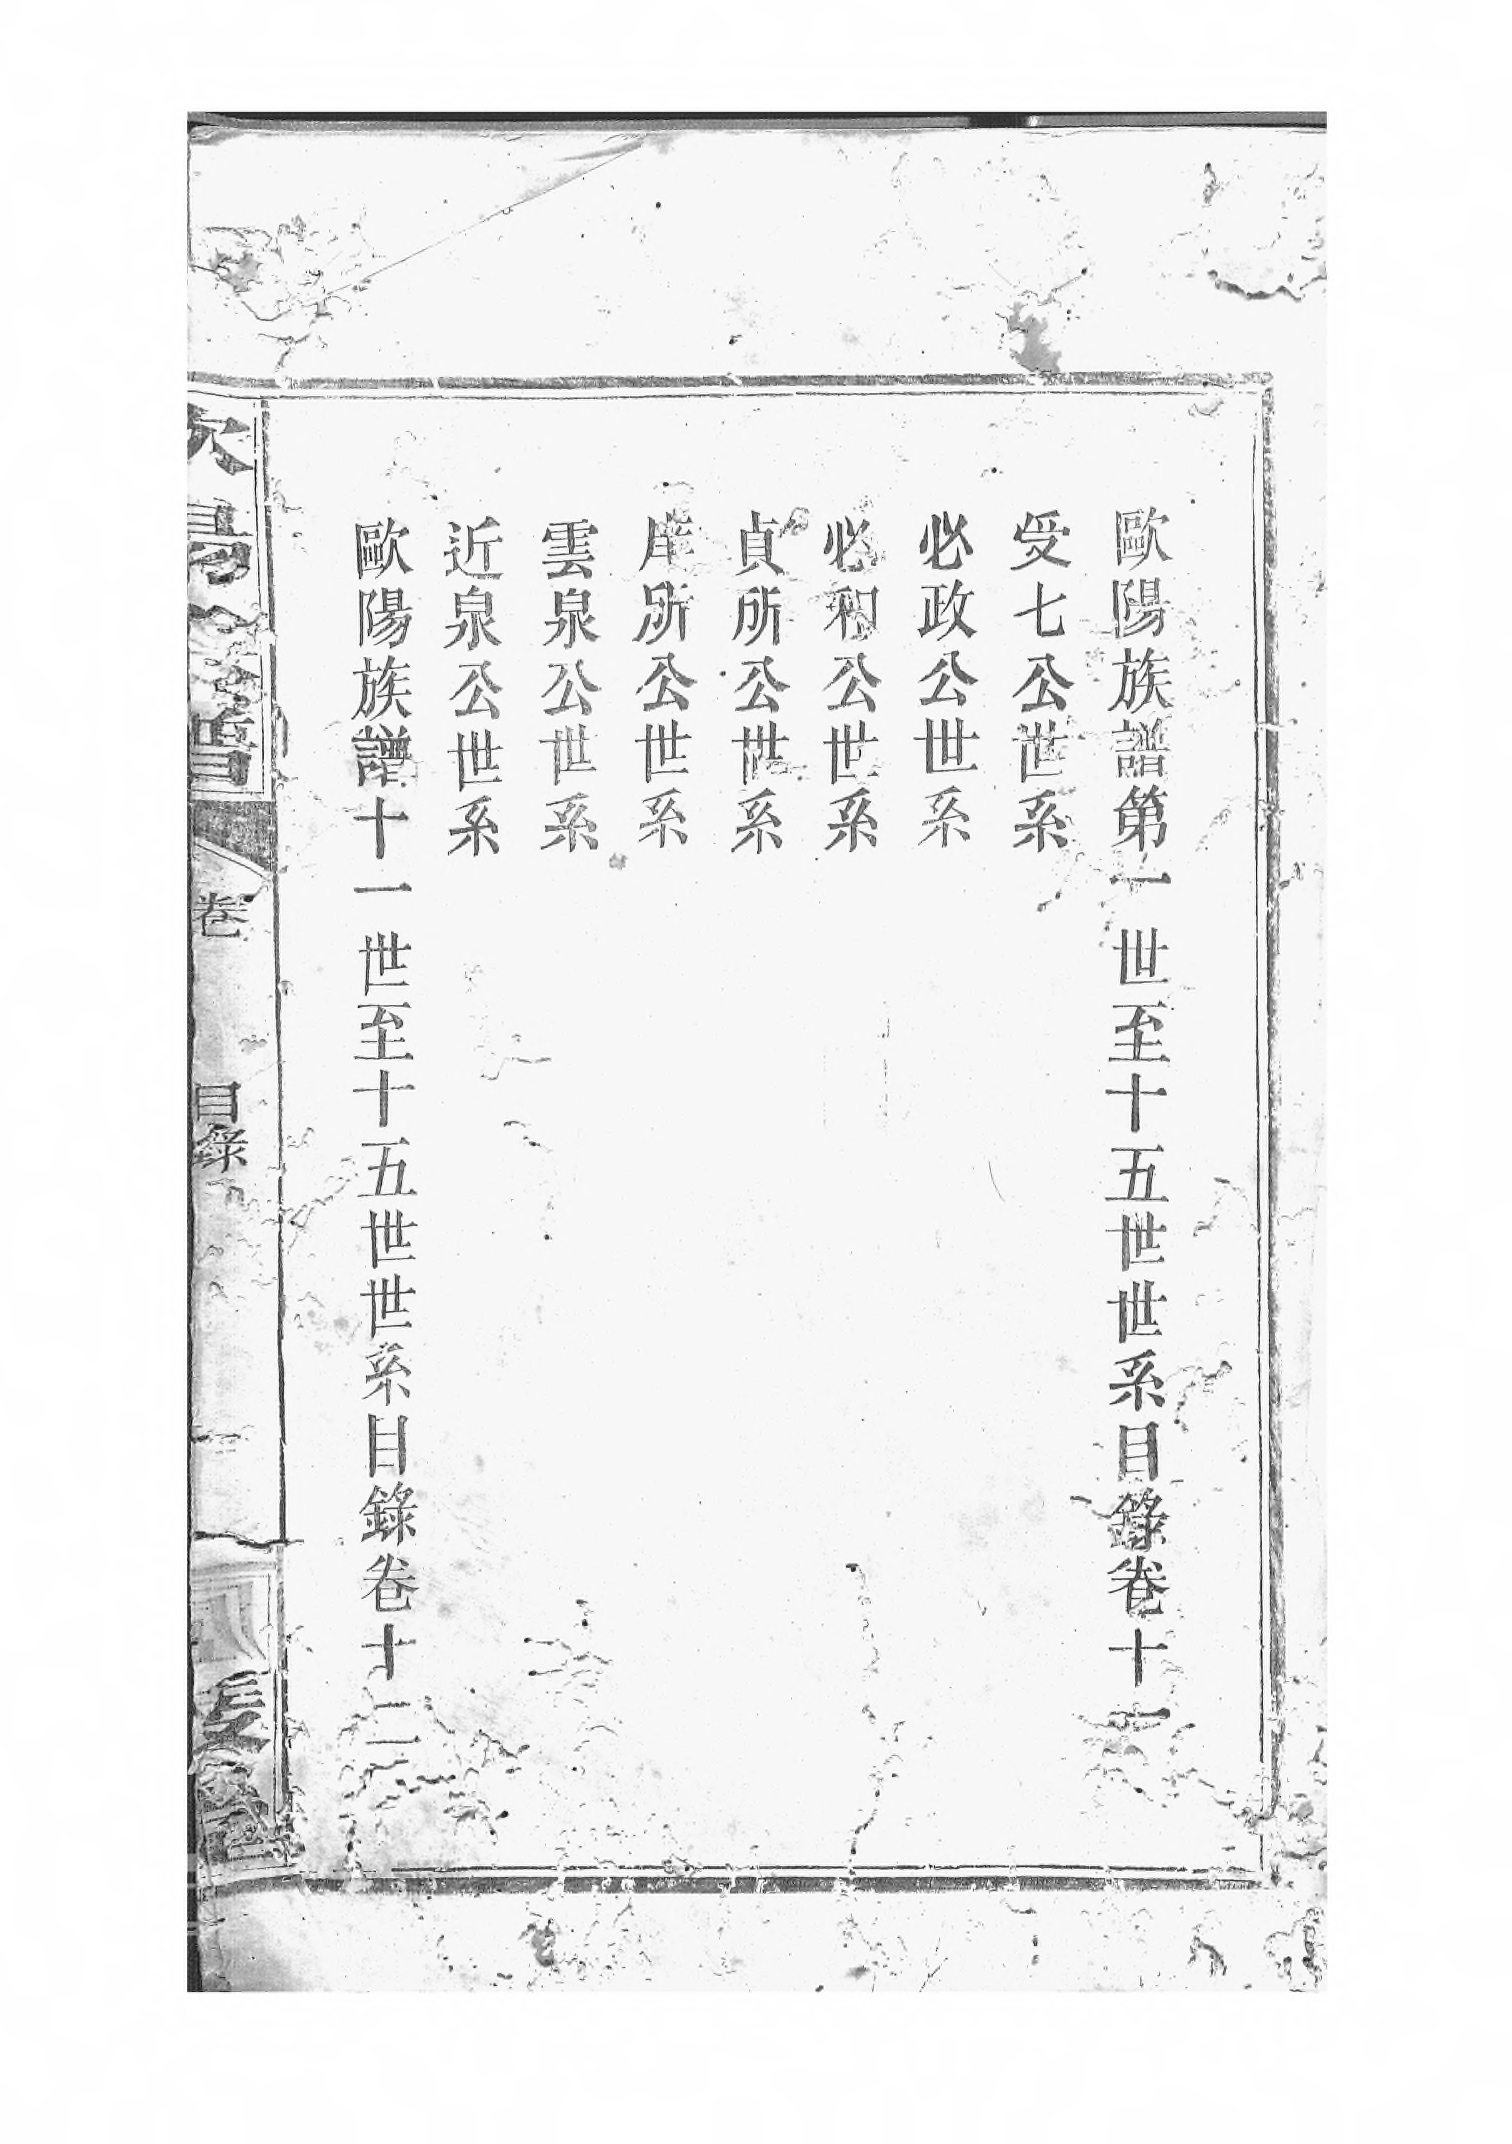 歐陽族譜第一世至十五世世系目錄卷十一
受七公世系
必政公世系
必和公世系
貞所公世系
岸所公世系
雲泉公世系
近泉公世系
歐陽族譜十一世至十五世世系目錄卷十二
卷
目錄